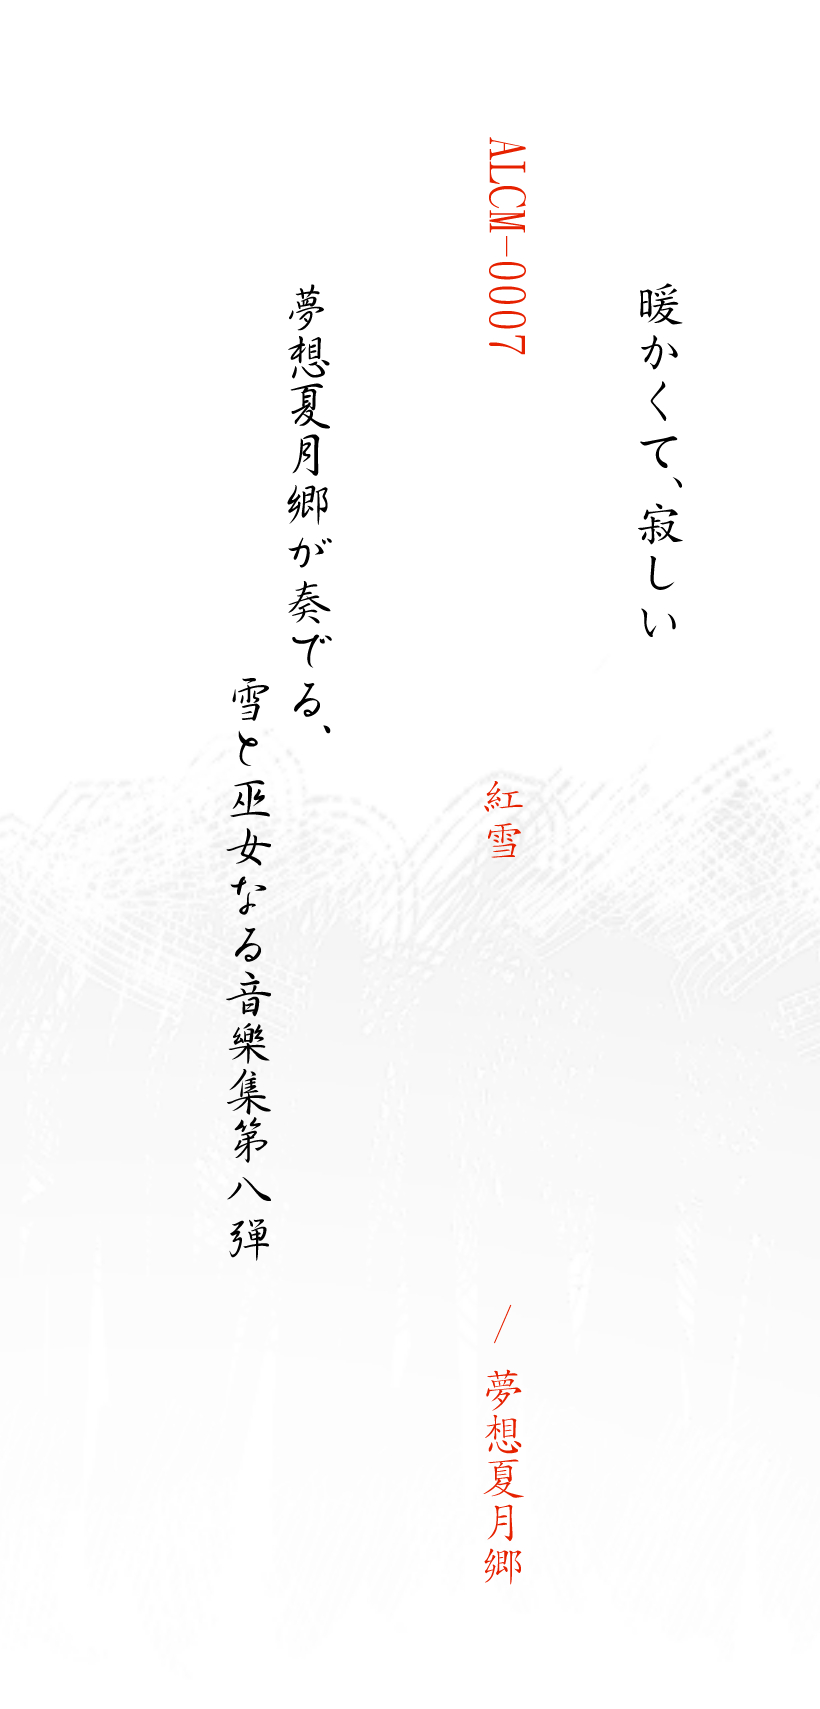 暖かくて、寂しい
ALCM-0007
紅雪
/ 夢想夏月郷
夢想夏月郷が奏でる、
雪と巫女なる音樂集第八弾